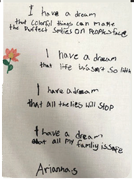 I have a dream
that colorful things can make
the perfect smiles on People's face
I have a dream
that life wasn't so
I have a dream
that all the lies will STOP
I have a dream
that all my family is safe
Arianna.s